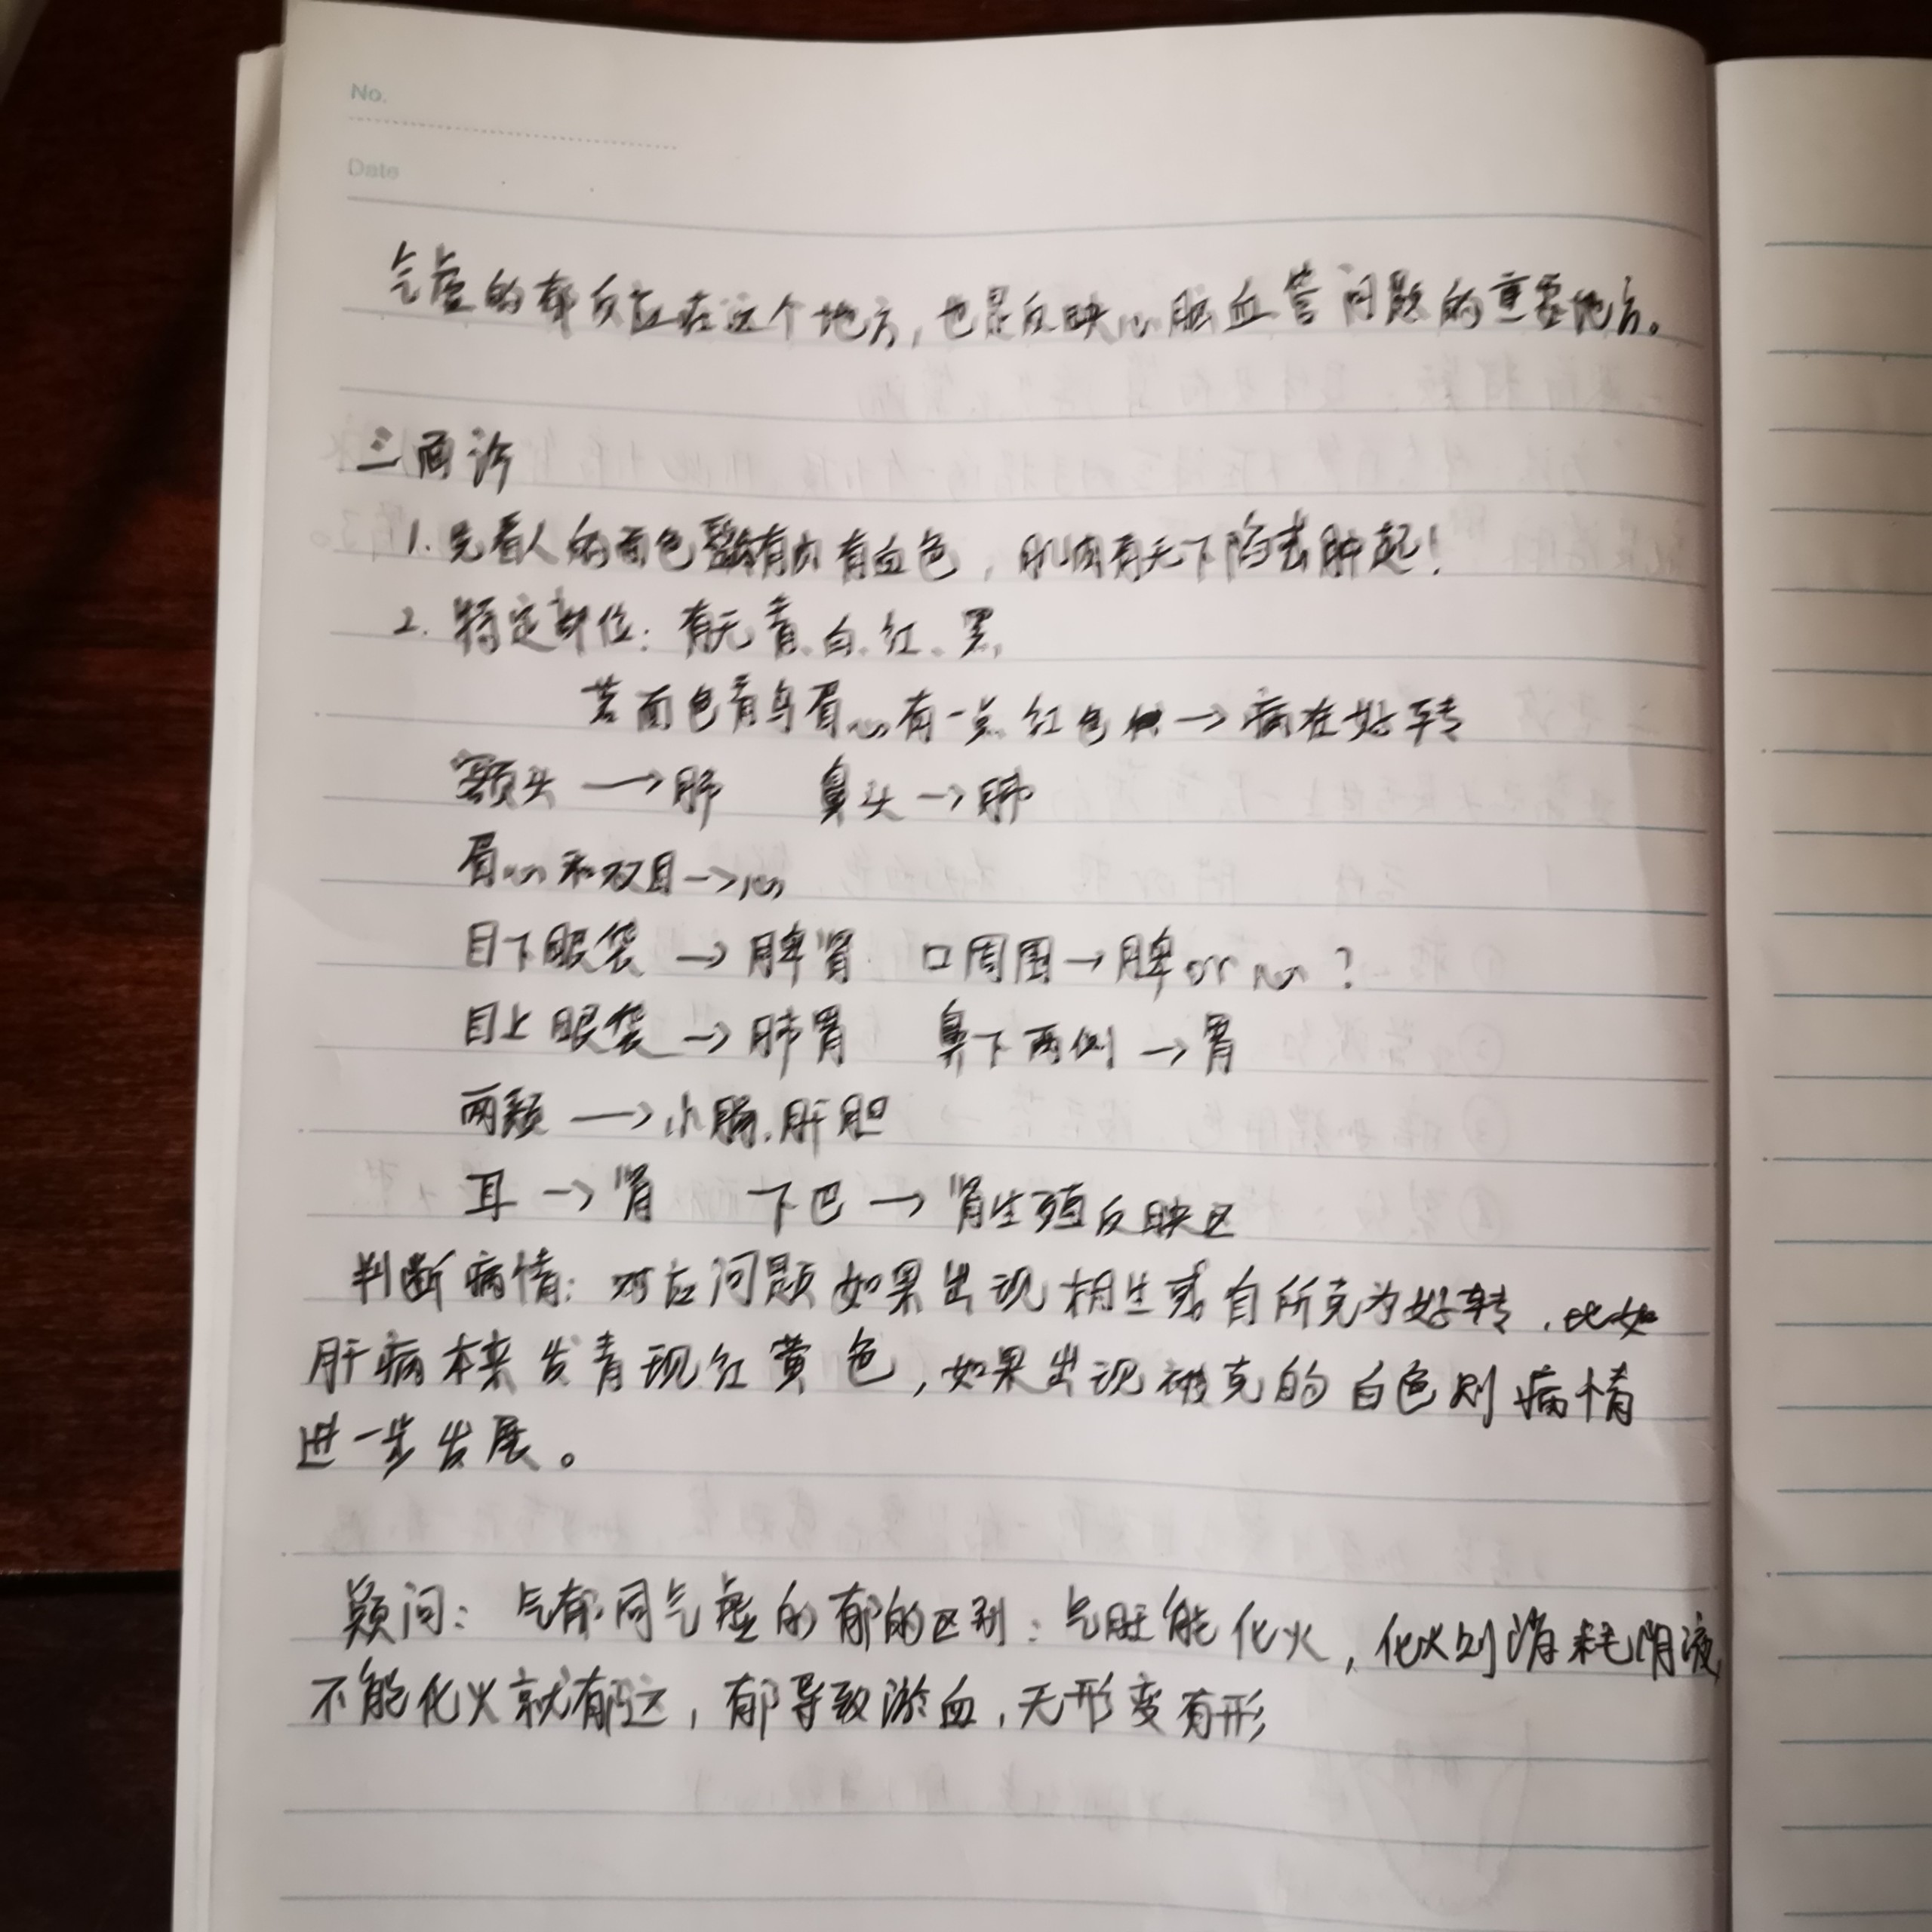 No.
Date
气虚的郁反应在这个地方，也是反映心脑血管问题的重要地方。
三面诊
1. 先看人的面色 有血色，肌肉有无下陷或肿起！
2. 特定部位：有无青、白、红、黑，
若面色青乌眉心有一点红色 → 病在好转
额头 → 肺 鼻头 → 肺
眉心和双目 → 心
目下眼袋 → 脾肾 口周围 → 脾 or 心？
目上眼袋 → 肺胃 鼻下两侧 → 胃
两颊 → 小肠、肝胆
耳 → 肾 下巴 → 肾生殖反映区
判断病情：对应问题如果出现相生或自所克为好转，比如
肝病本来发青现红黄色，如果出现被克的白色则病情
进一步发展。
疑问：气郁同气虚的郁的区别：气旺能化火，化火则消耗阴液，
不能化火就郁 ，郁导致淤血，无形变有形